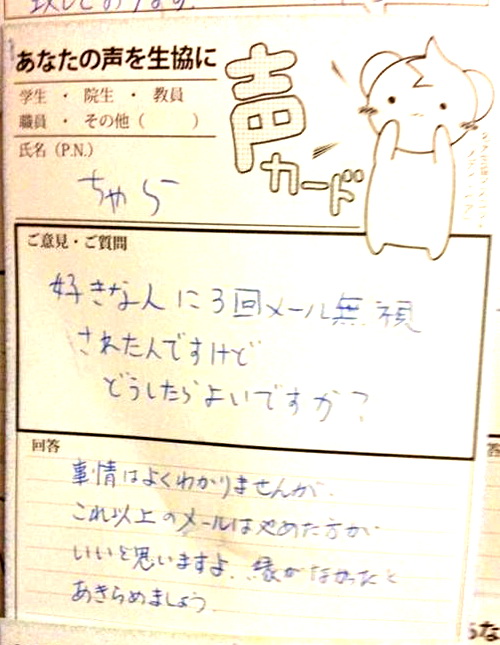 致しております。
あなたの声を生協に
学生 ・ 院生 ・ 教員
職員 ・ その他（　　　）
氏名（P.N.）
ちゃらー
声
カード
ご意見・ご質問
好きな人に3回メール無視
されたんですけど
どうしたらよいですか？
回答
事情はよくわかりませんが、
これ以上のメールはやめた方が
いいと思いますよ。縁がなかったと
あきらめましょう
答